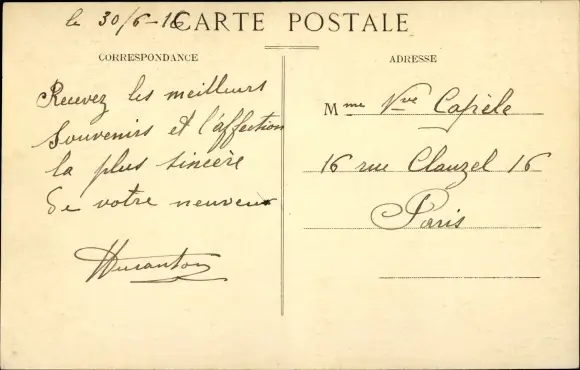 le 30/6-16
CARTE POSTALE
CORRESPONDANCE
Recevez les meilleurs
souvenirs et l'affection
la plus sincère
de votre neuveu
ADRESSE
Mme Vve Capèle
16 rue Clauzel 16
Paris